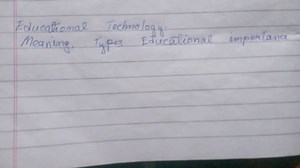 Educational Technology:
Meaning, Types Educational importana